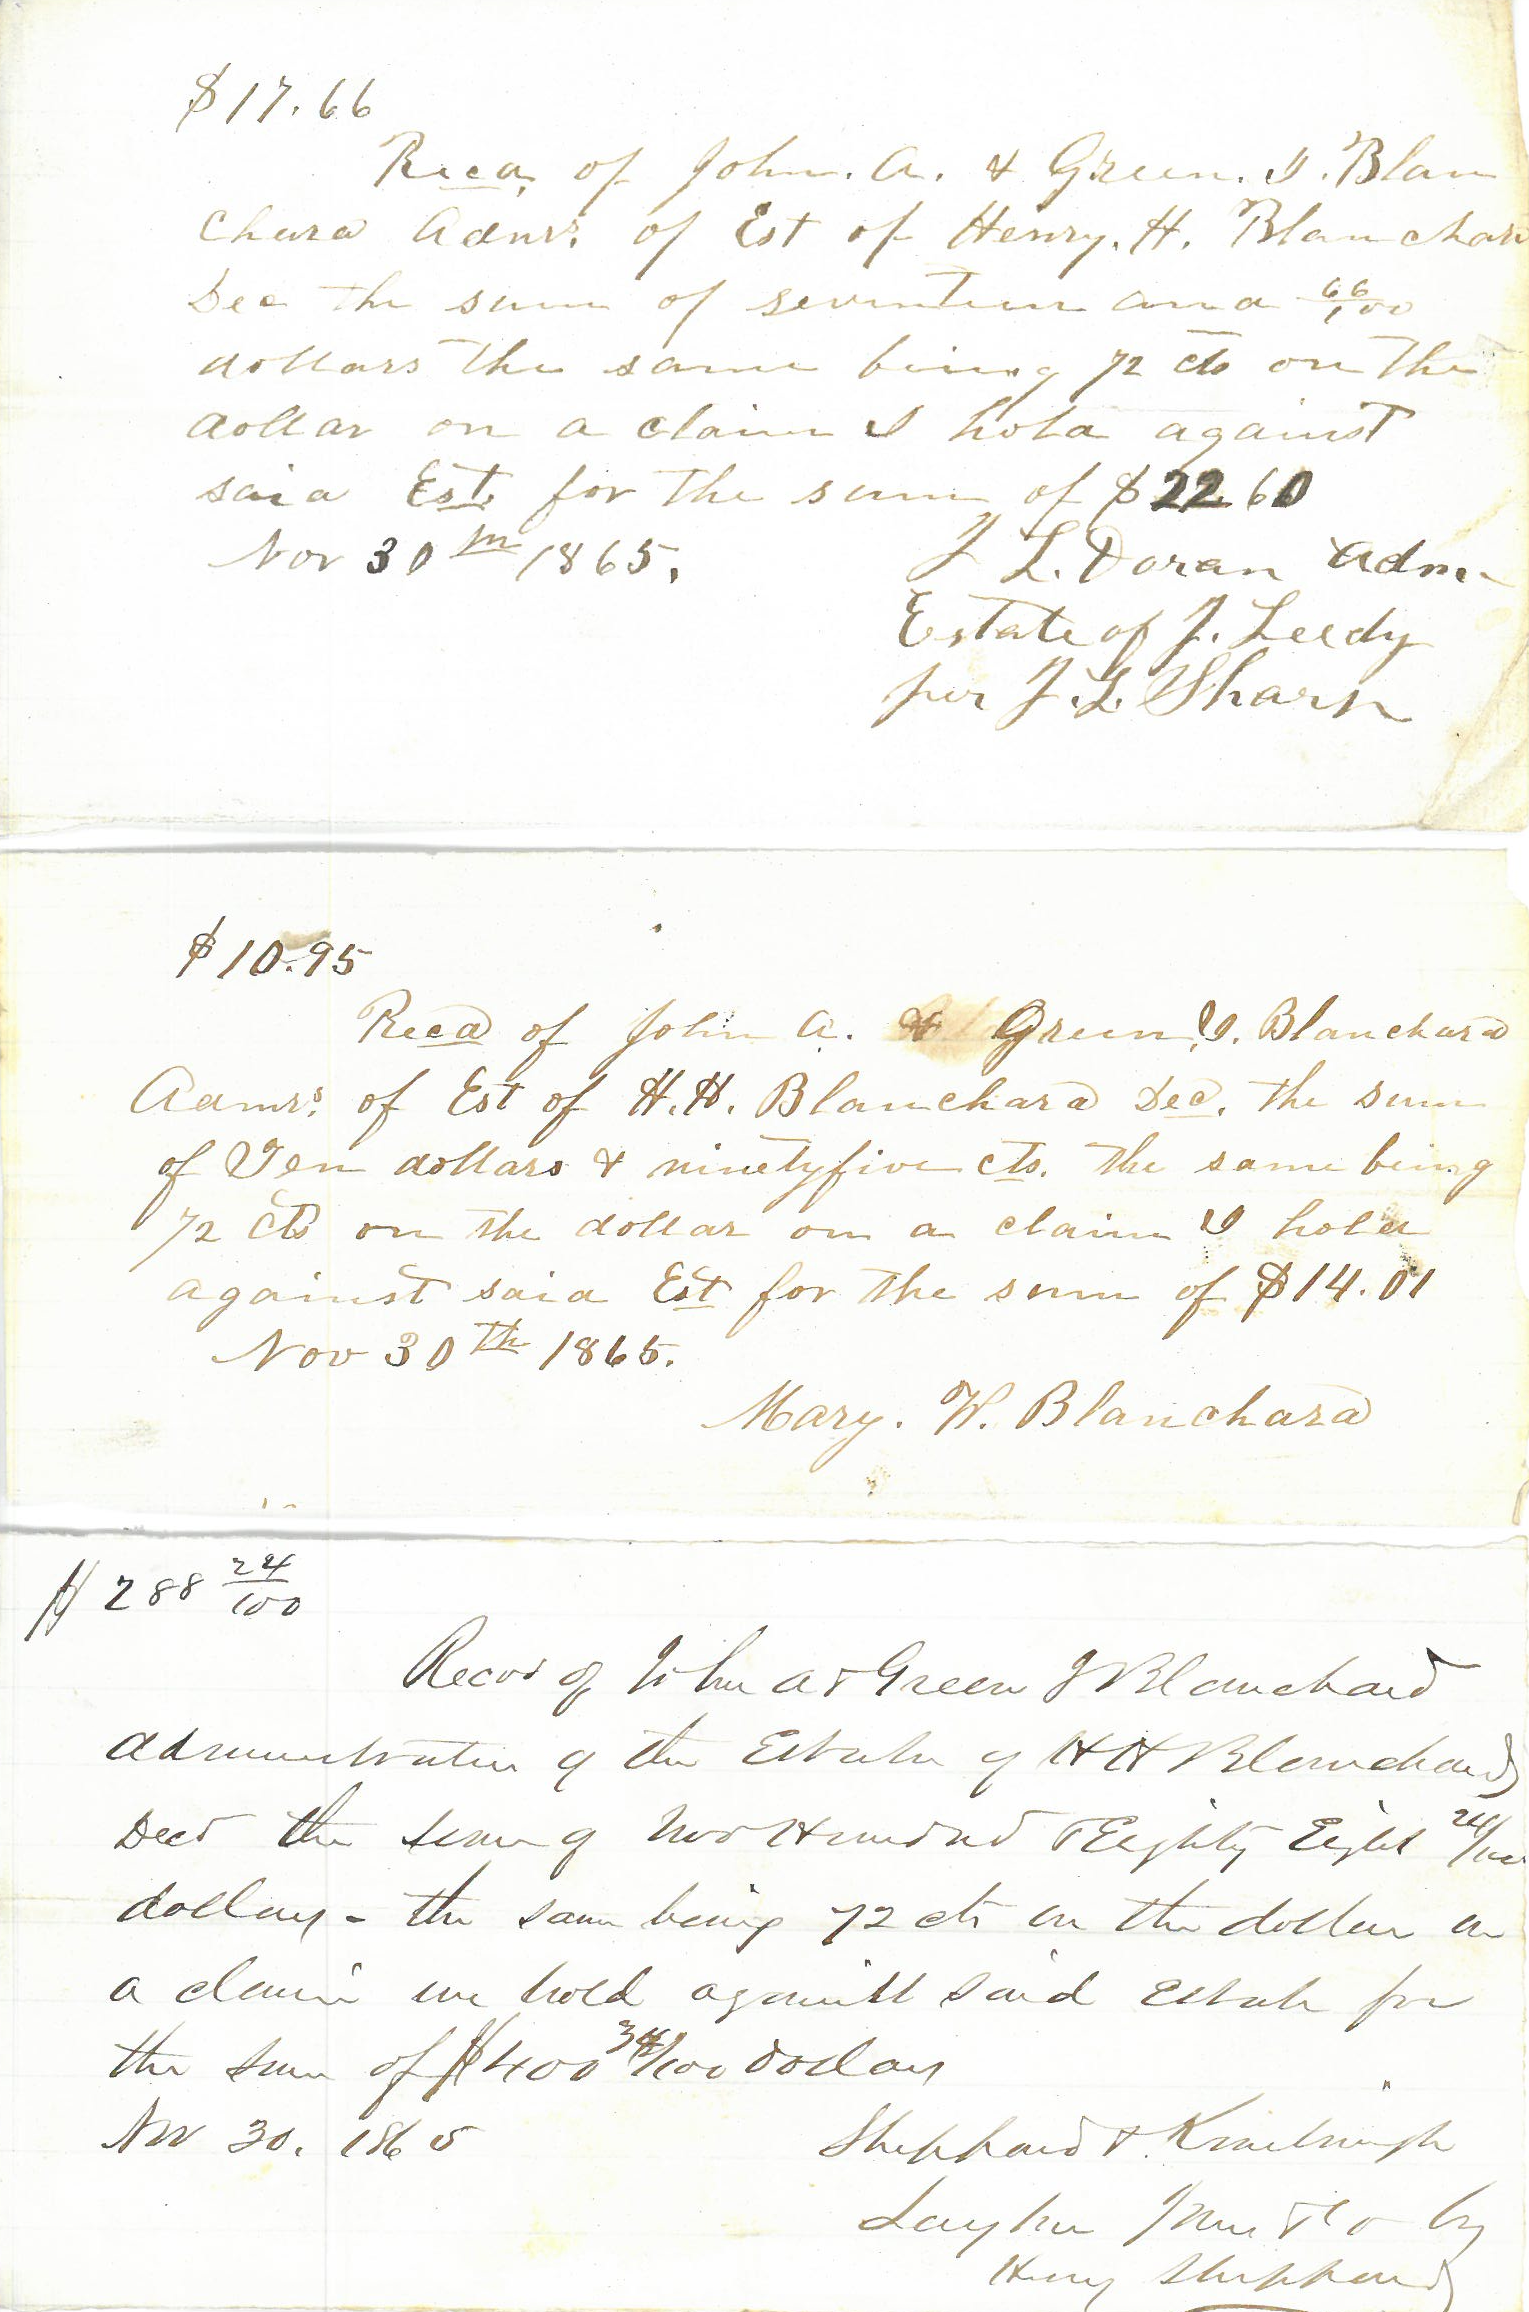 $17.66
Recd. of John. A. & Green. I. Blan
chard Admrs. of Est of Henry. H. Blanchard
Dec the sum of seventeen and 66/100
dollars the same being 72 cts on the
dollar on a claim I hold against
said Est. for the sum of $22 60
Nov 30th 1865.
J L. Doran Adm.
Estate of J. Leedy
per J. L. Sharp
$10.95
Recd of John A. & Green, I. Blanchard
Admrs. of Est of H.H. Blanchard Decd. the sum
of Ten dollars & ninetyfive cts. the same being
72 cts on the dollar on a claim I hold
against said Est for the sum of $14.01
Nov 30th 1865.
Mary. W. Blanchard
$288 24/100
Recvd of John A & Green J Blanchard
administrators of the Estate of H H Blanchard
Decd the sum of two Hundred & Eighty Eight 24/100
dollars - the same being 72 cts on the dollar on
a claim we hold against said Estate for
the sum of $400 34/100 dollars
Nov 30. 1865
Sheppard & Kimbrough
& Co by
Henry Sheppard